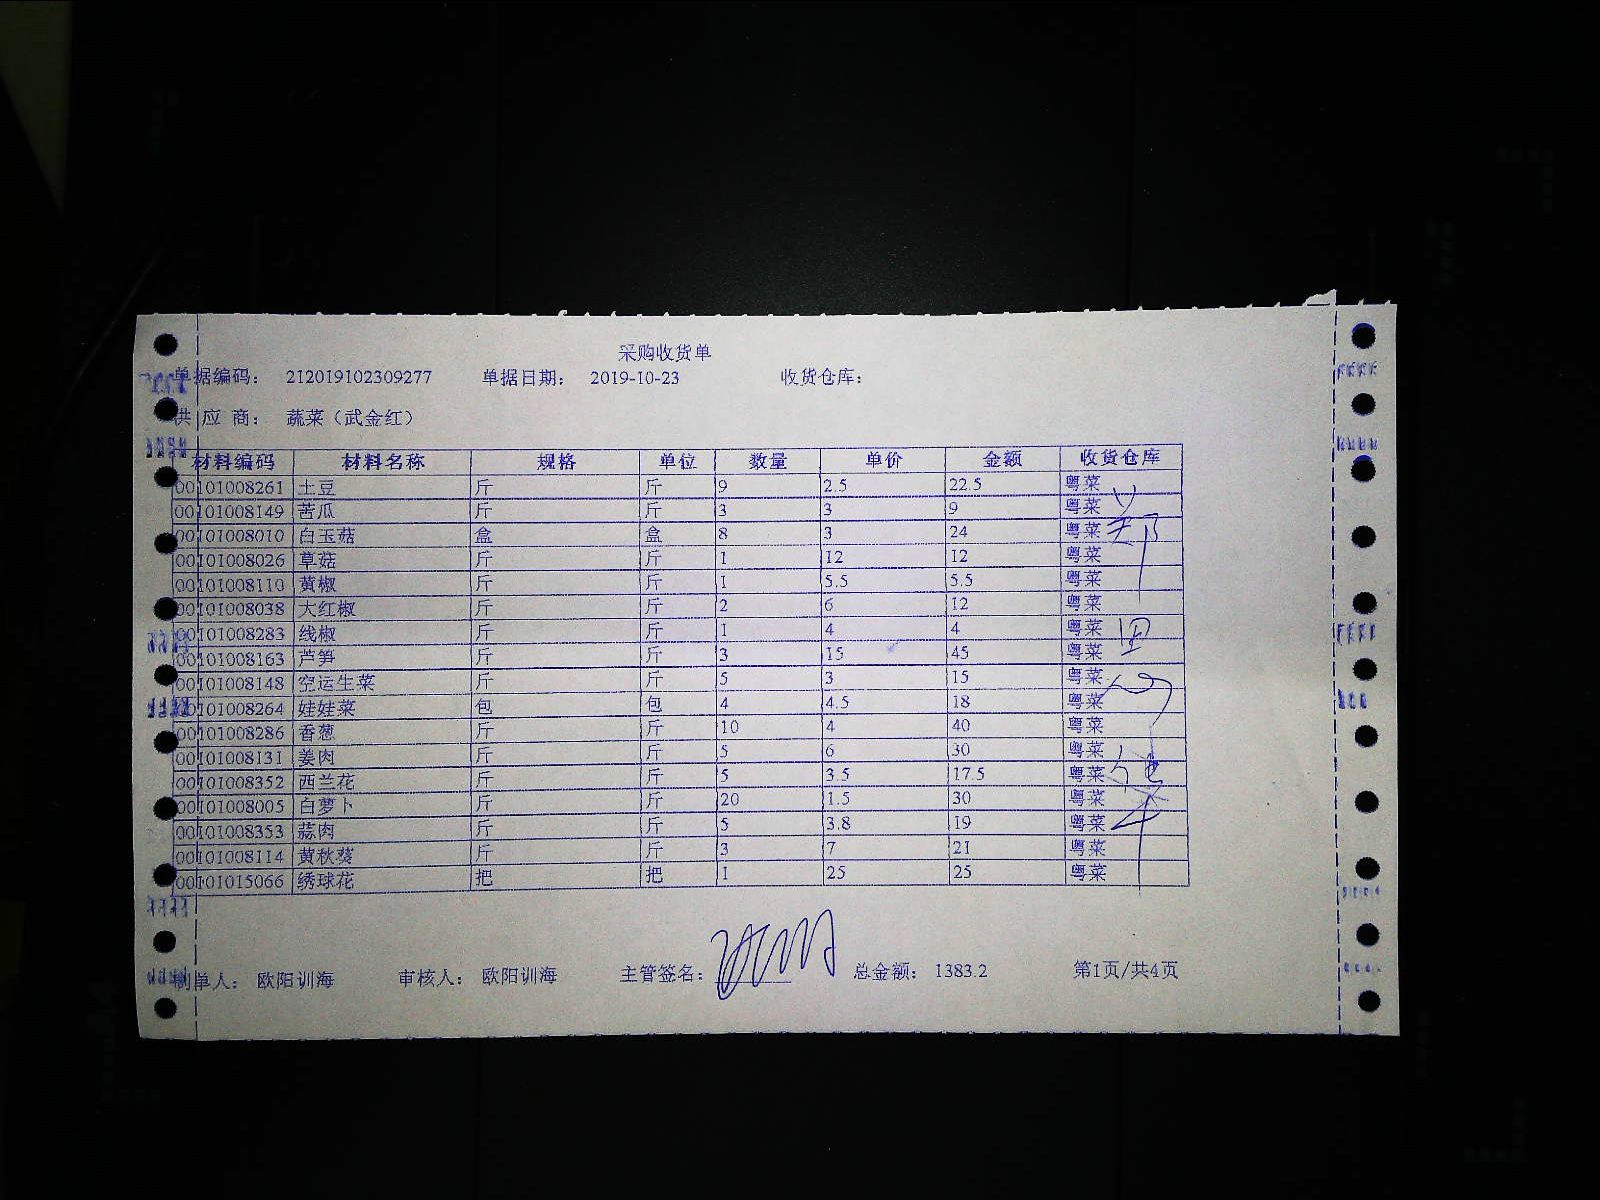 采购收货单
单据编码： 212019102309277 单据日期： 2019-10-23 收货仓库：
供 应 商： 蔬菜（武金红）
材料编码 材料名称 规格 单位 数量 单价 金额 收货仓库
00101008261 土豆 斤 斤 9 2.5 22.5 粤菜
00101008149 苦瓜 斤 斤 3 3 9 粤菜
00101008010 白玉菇 盒 盒 8 3 24 粤菜
00101008026 草菇 斤 斤 1 12 12 粤菜
00101008110 黄椒 斤 斤 1 5.5 5.5 粤菜
00101008038 大红椒 斤 斤 2 6 12 粤菜
00101008283 线椒 斤 斤 1 4 4 粤菜
00101008163 芦笋 斤 斤 3 15 45 粤菜
00101008148 空运生菜 斤 斤 5 3 15 粤菜
00101008264 娃娃菜 包 包 4 4.5 18 粤菜
00101008286 香葱 斤 斤 10 4 40 粤菜
00101008131 姜肉 斤 斤 5 6 30 粤菜
00101008352 西兰花 斤 斤 5 3.5 17.5 粤菜
00101008005 白萝卜 斤 斤 20 1.5 30 粤菜
00101008353 蒜肉 斤 斤 5 3.8 19 粤菜
00101008114 黄秋葵 斤 斤 3 7 21 粤菜
00101015066 绣球花 把 把 1 25 25 粤菜
制单人： 欧阳训海 审核人： 欧阳训海 主管签名： 总金额： 1383.2 第1页/共4页